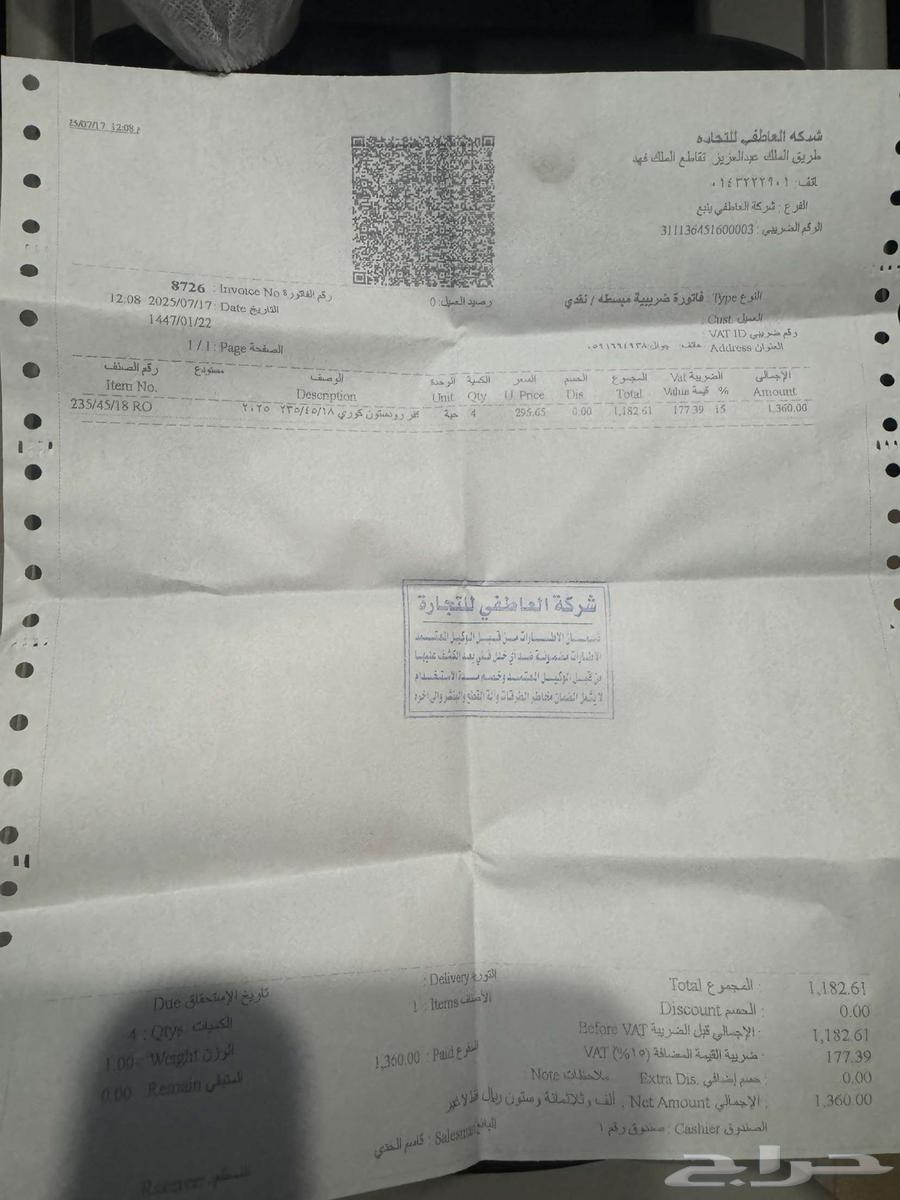 25/07/17 12:08
شركه العاطفي للتجاره
طريق الملك عبدالعزيز تقاطع الملك فهد
هاتف: ٠١٤٣٢٢٢٩٠١
الفرع : شركة العاطفي ينبع
الرقم الضريبي : 311136451600003
النوع Type : فاتورة ضريبية مبسطه / نقدي
رصيد العميل: 0
رقم الفاتورة Invoice No : 8726
العميل Cust.
التاريخ Date : 2025/07/17 12:08
رقم ضريبي VAT ID
1447/01/22
العنوان Address
هاتف: جوال: ٠٥٩١٦٦٤٩٣٨
الصفحة Page : 1 / 1
رقم الصنف مستودع الوصف الوحدة الكمية السعر الخصم المجموع الضريبة Vat الإجمالي
Item No. Description Unit Qty U. Price Dis Total Value قيمة % Amount
235/45/18 RO كفر رودستون كوري ٢٣٥/٤٥/١٨ ٢٠٢٥ حبة 4 295.65 0.00 1,182.61 177.39 15 1,360.00
شركة العاطفي للتجارة
ضمان الاطارات من قبل الوكيل المعتمد
الاطارات مضمونة ضد أي خلل فني بعد الكشف عليها
من قبل الوكيل المعتمد وخصم مدة الاستخدام
لا يشمل الضمان مخاطر الطرقات وانه القطع والبنشر والى اخره
المجموع Total : 1,182.61
الخصم Discount : 0.00
الإجمالي قبل الضريبة Before VAT : 1,182.61
ضريبة القيمة المضافة (١٥%) VAT : 177.39
خصم إضافي Extra Dis. : 0.00
الإجمالي Net Amount , ألف وثلاثمائة وستون ريال فقط لاغير : 1,360.00
الصندوق Cashier : صندوق رقم ١
التوريد Delivery :
الأصناف Items : 1
المدفوع Paid : 1,360.00
ملاحظات Note :
البائع Salesman : قاسم
تاريخ الإستحقاق Due
الكميات Qtys : 4
الوزن Weight : 1.00
المتبقي Remain 0.00
المستلم Receiver
حراج